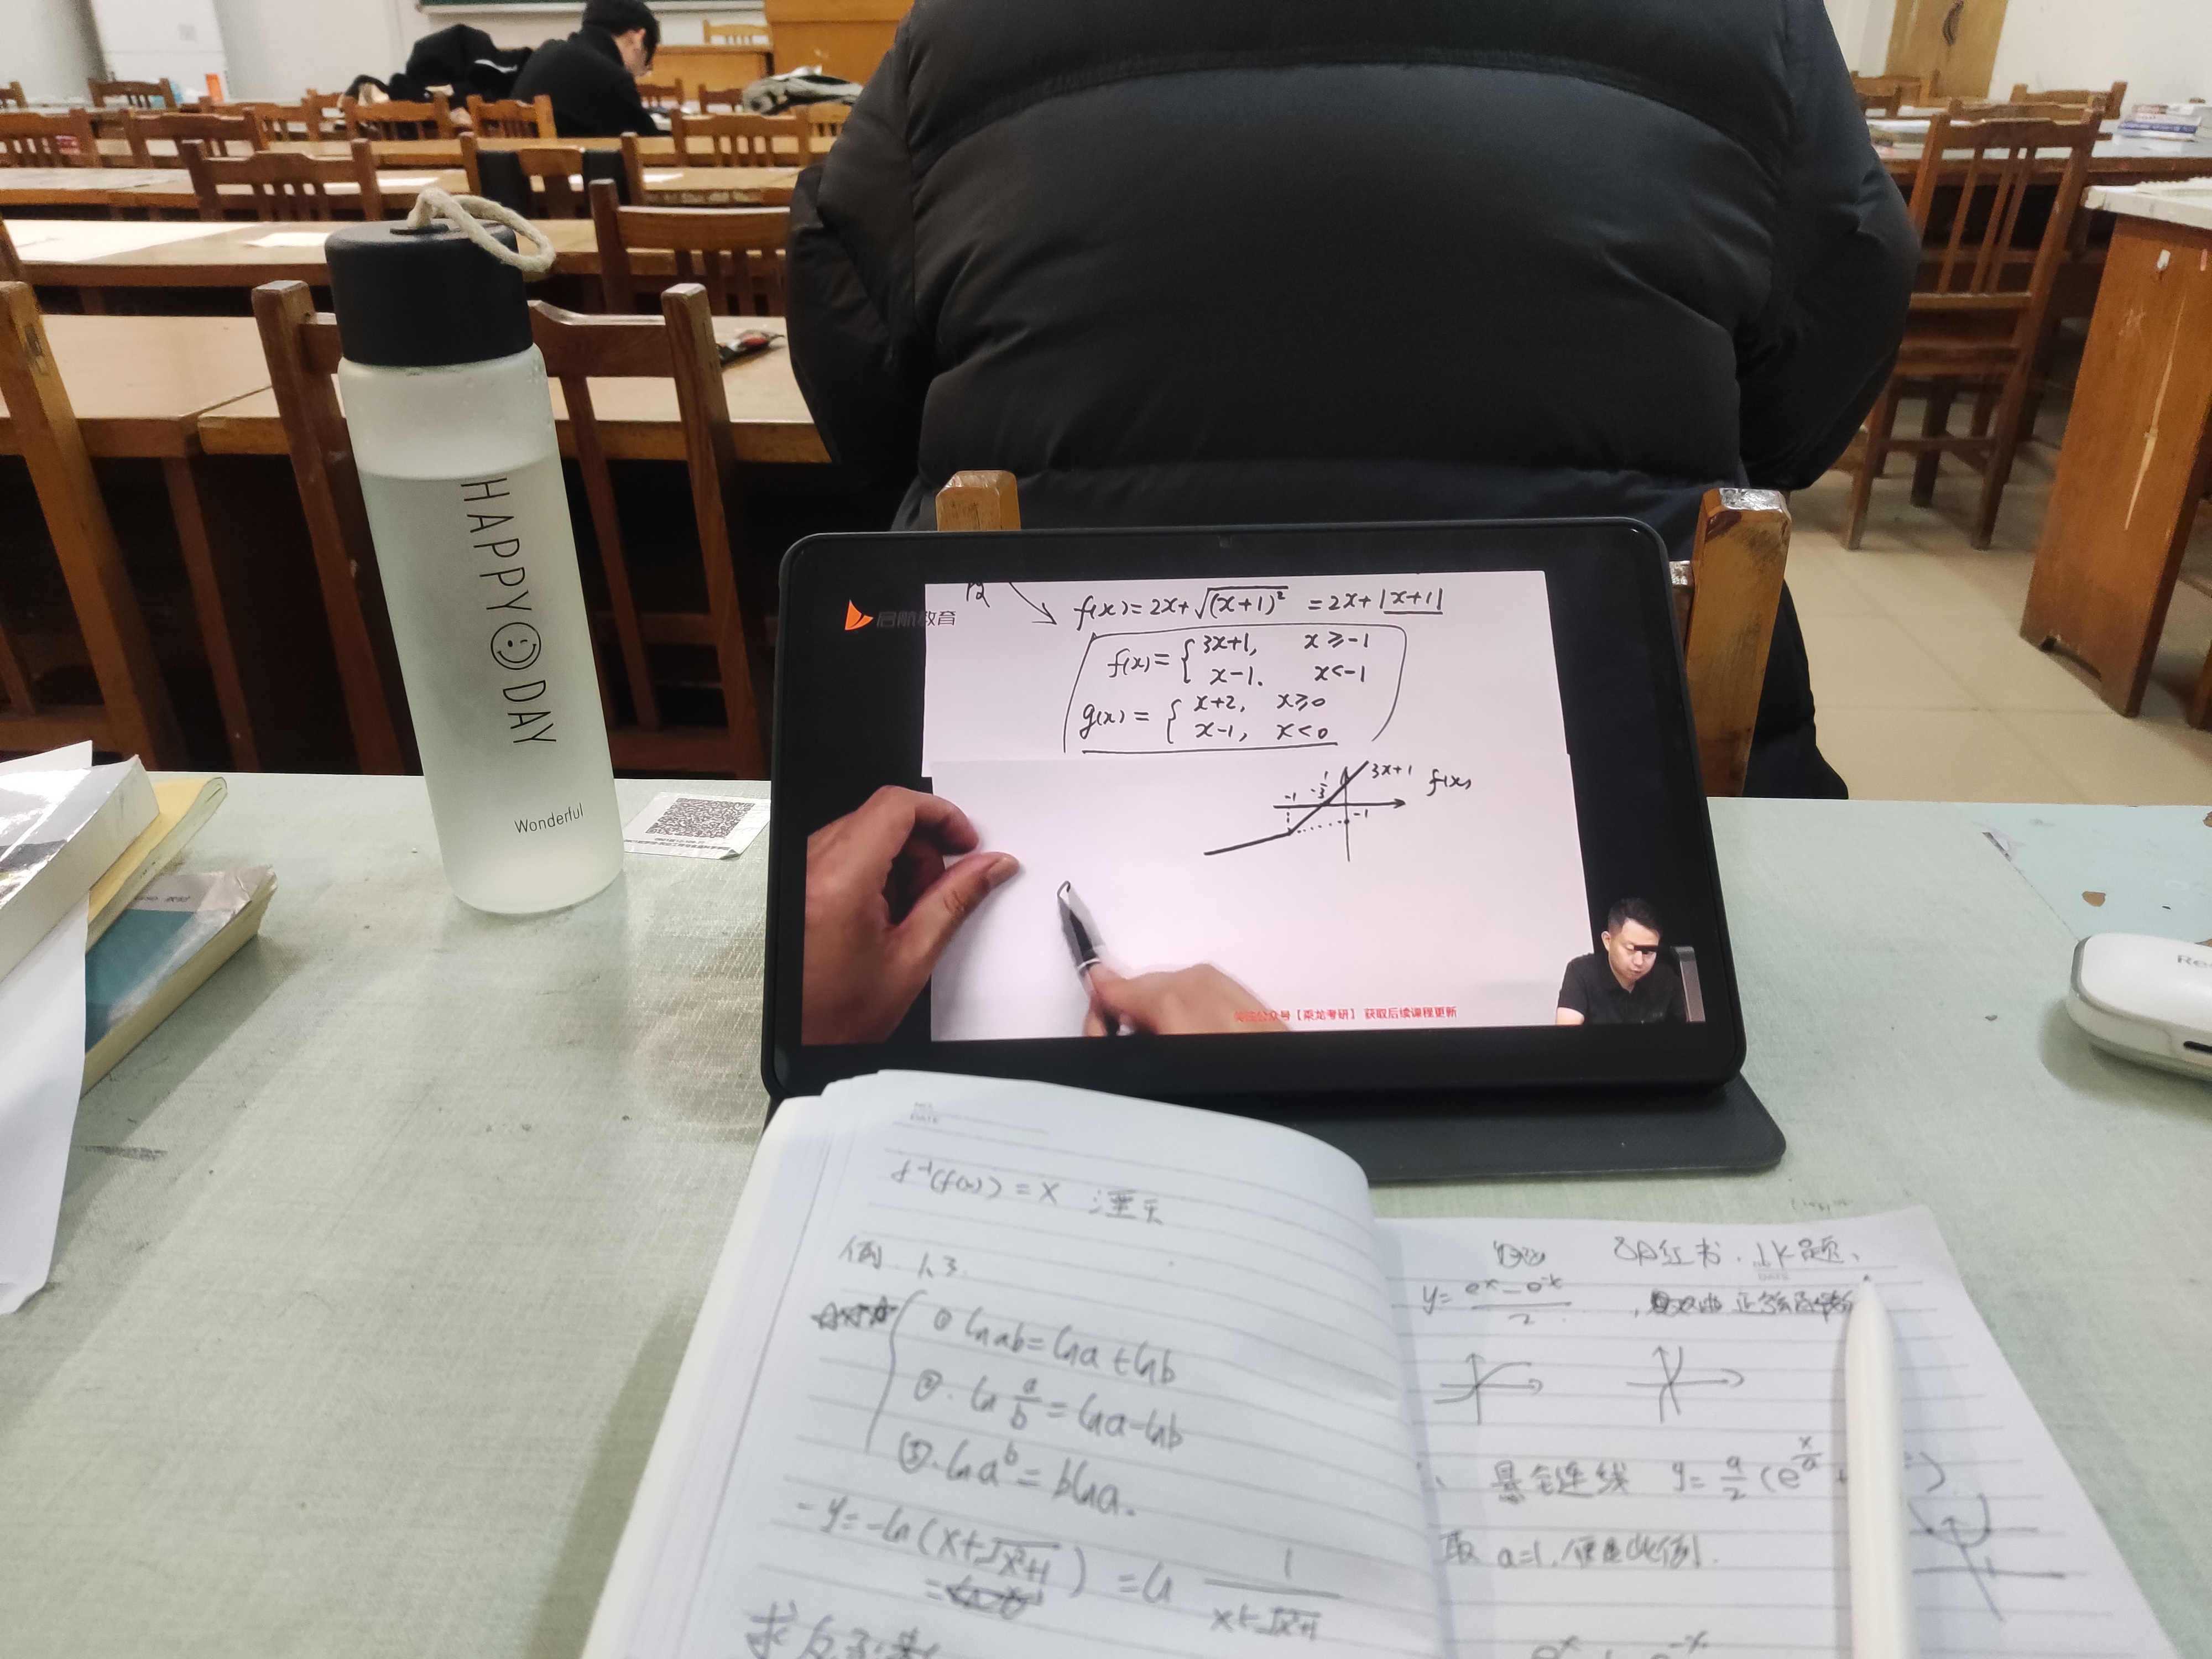 HAPPY DAY
Wonderful
启航教育
f(x)=2x+√(x+1)² =2x+|x+1|
f(x)={3x+1, x≥-1
x-1. x<-1
g(x)={x+2, x≥0
x-1, x<0
3x+1 f(x)
-1 -1/3 1
-1
关注公众号【乘龙考研】 获取后续课程更新
NO.
DATE
f⁻¹(f(x))=x
例 1.3.
① ln ab=lna+lnb
②. ln a/b=lna-lnb
③. ln aᵇ=blna.
-y=-ln(x+√x²+1)=ln 1/x+√x²+1
求反函数
红书. 题、
DATE
y=eˣ-e⁻ˣ/2
悬 连线 y=a/2(e^x/a
取 a=1,便是此例.
eˣ e⁻ˣ